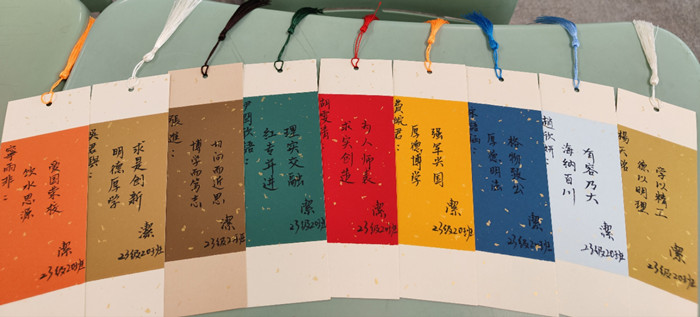 爱国荣校
饮水思源
23级203班
吴君骐：
求是创新
明德厚学
潔
23级203班
張進：
切问而近思
博学而笃志
潔
23级203班
理实交融
红专并进
潔
23级203班
为人师表
求实创造
潔
23级203班
强军兴国
厚德博学
潔
23级203班
格物致公
厚德明法
潔
23级203班
趙欣妍
有容乃大
海纳百川
潔
23级203班
学以精工
德以明理
潔
23级203班